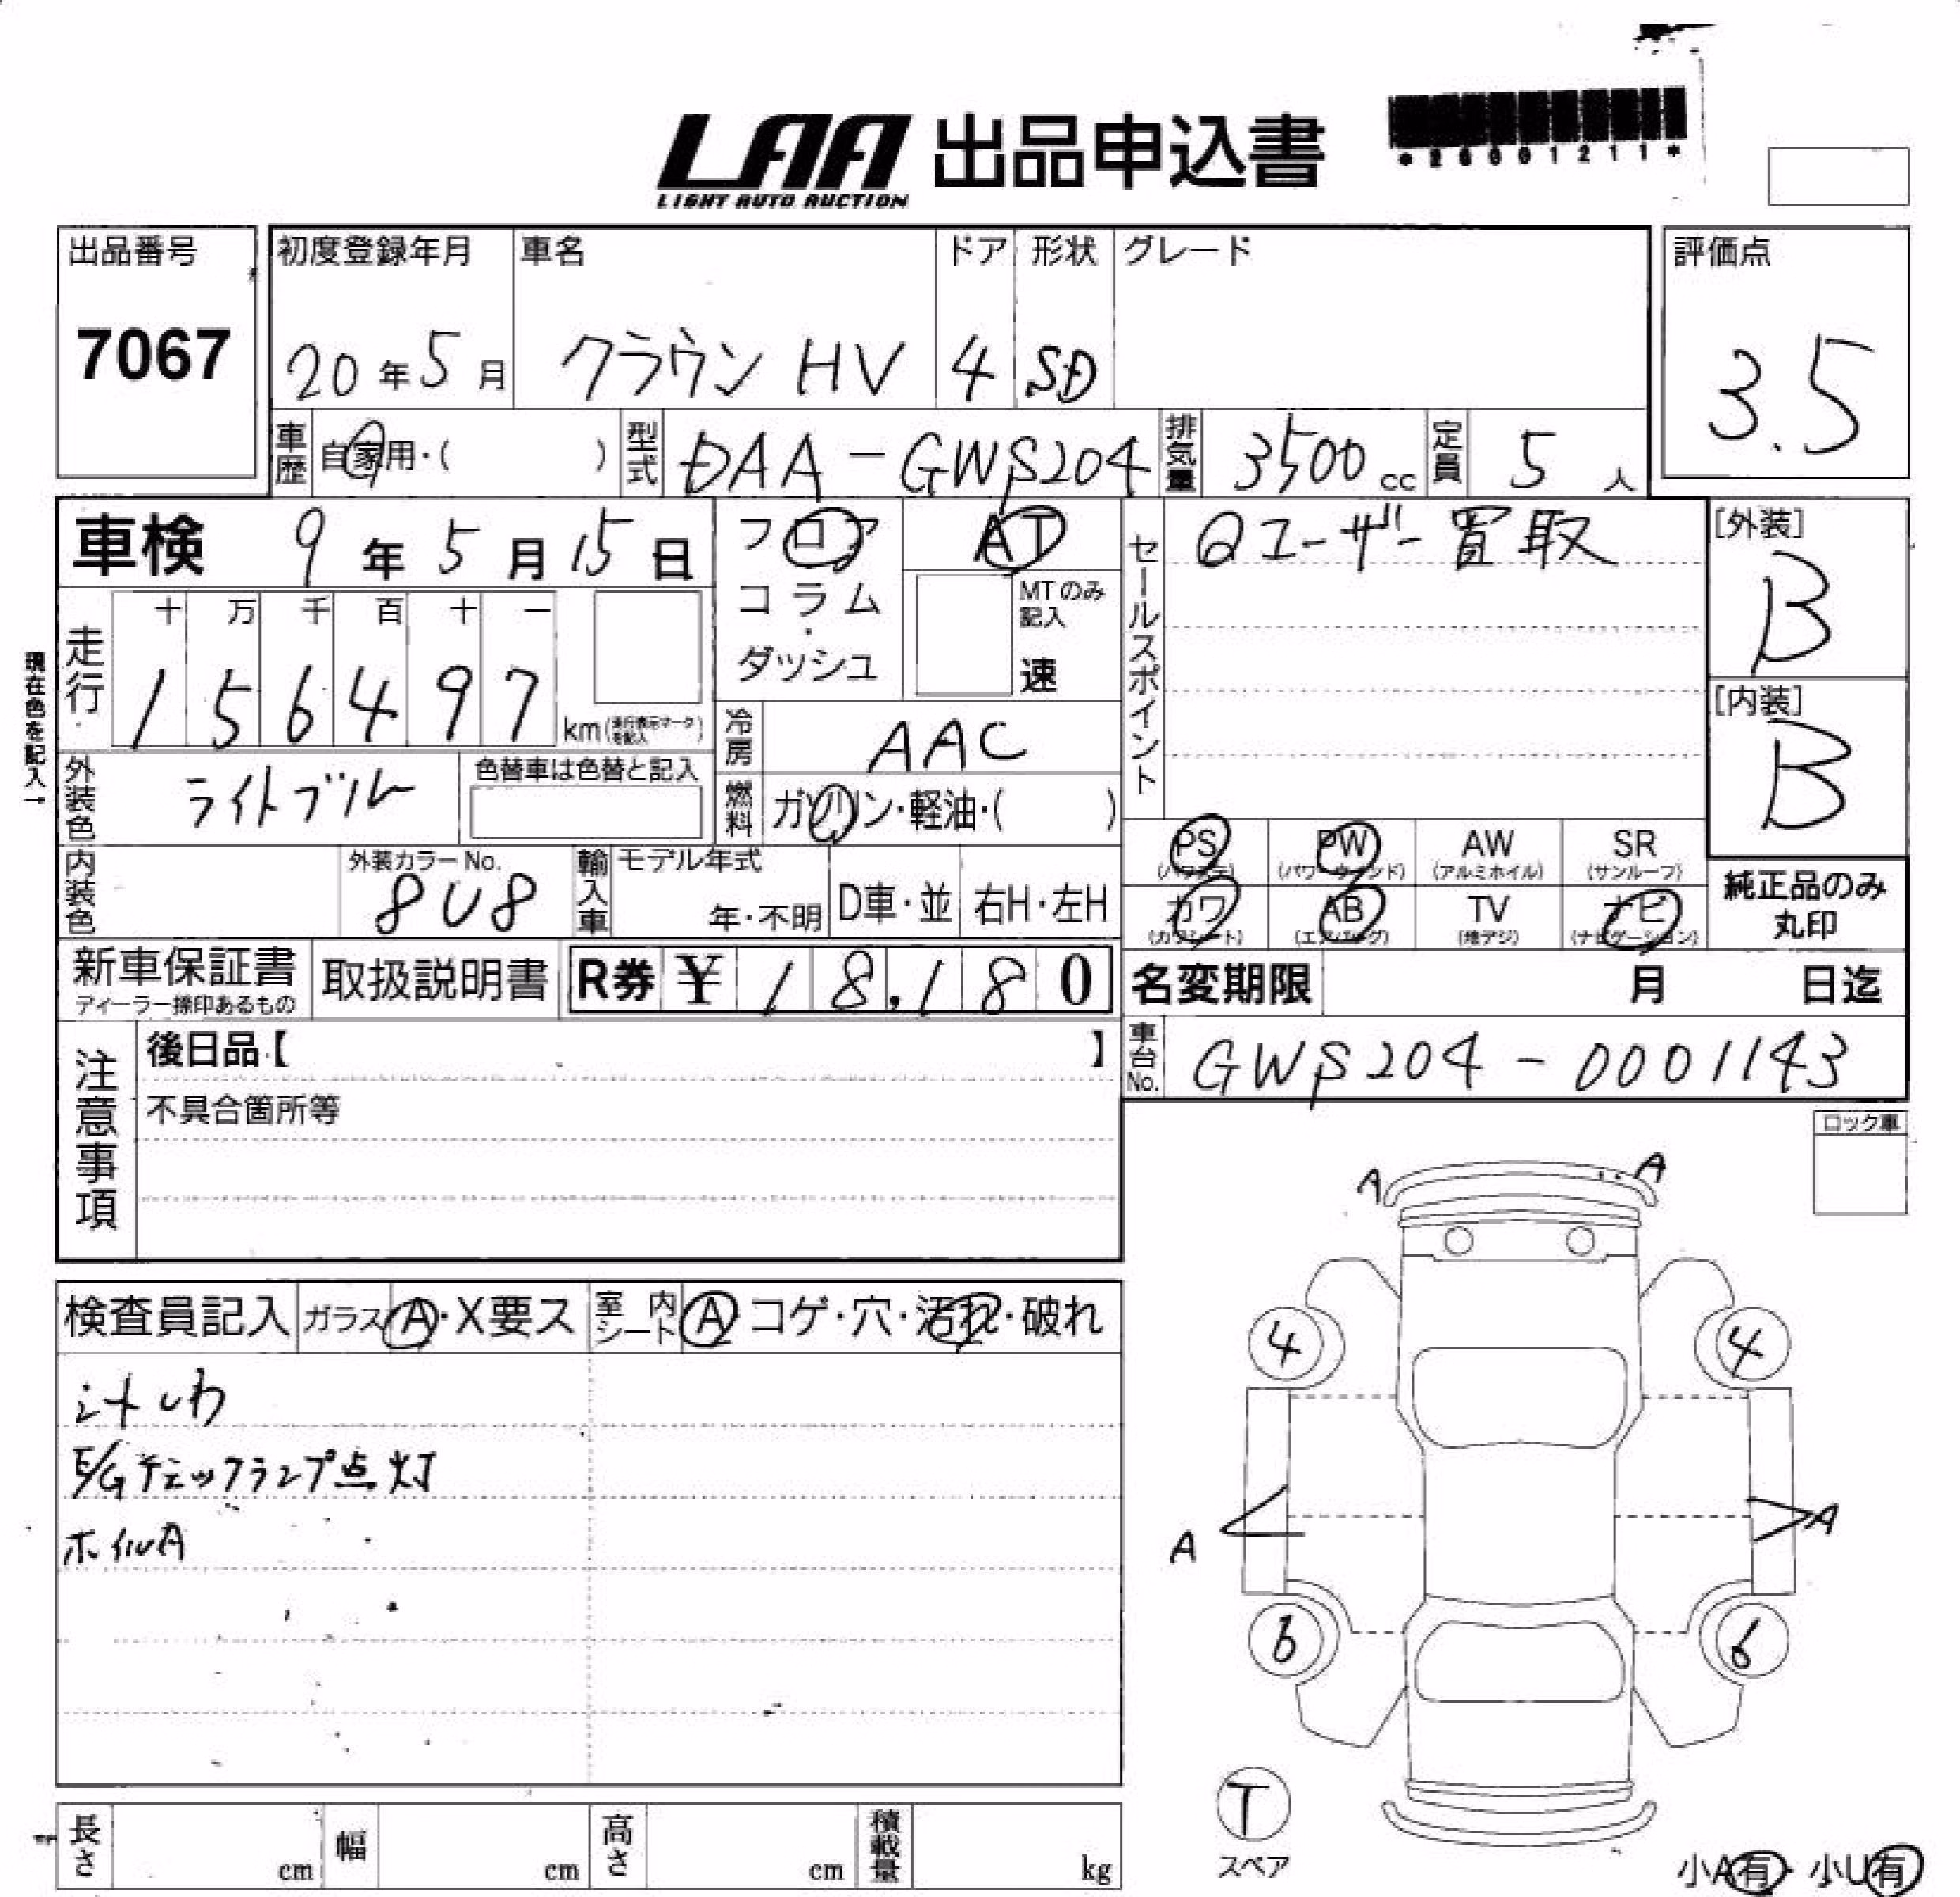 LAA 出品申込書
LIGHT AUTO AUCTION
*26001211*
出品番号 初度登録年月 車名 ドア 形状 グレード 評価点
7067 20年5月 クラウン HV 4 SD 3.5
車歴 自家用・( ) 型式 DAA-GWS204 排気量 3500cc 定員 5人
車検 9年5月15日 フロア AT セールスポイント ①ユーザー買取 [外装]
コラム・ダッシュ MTのみ記入 速 B
走行 十 万 千 百 十 一
1 5 6 4 9 7 km(走行表示マークを記入) [内装]
現在色を記入→ 冷房 AAC B
外装色 ライトブルー 色替車は色替と記入 燃料 ガソリン・軽油・( )
PS(パワステ) PW(パワーウィンド) AW(アルミホイル) SR(サンルーフ)
内装色 外装カラーNo. 8U8 輸入車 モデル年式 年・不明 D車・並 右H・左H
カワ(カワシート) AB(エアバッグ) TV(地デジ) ナビ(ナビゲーション) 純正品のみ丸印
新車保証書 ディーラー捺印あるもの 取扱説明書 R券 ¥ 18,180 名変期限 月 日迄
注意事項 後日品【 】 車台No. GWS204-0001143
不具合箇所等
ロック車
A A
検査員記入 ガラスA・X要ス 室内シート A コゲ・穴・汚れ・破れ
4 4
シートしわ
E/Gチェックランプ点灯
ホイルA
A A
6 6
T
スペア
長さ cm 幅 cm 高さ cm 積載量 kg
小A有・小U有